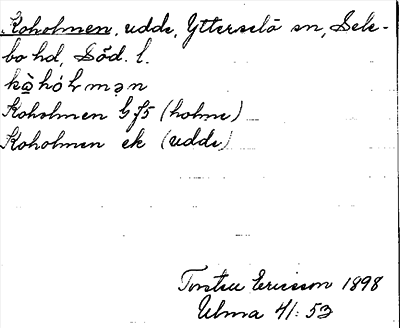 Koholmen, udde, Ytterselö sn, Sele-
bo hd, Söd. l.
kò̱hólmən
Koholmen Gf5 (holme)
Koholmen ek (udde)
Torsten Ericsson 1898
Ulma 41:53